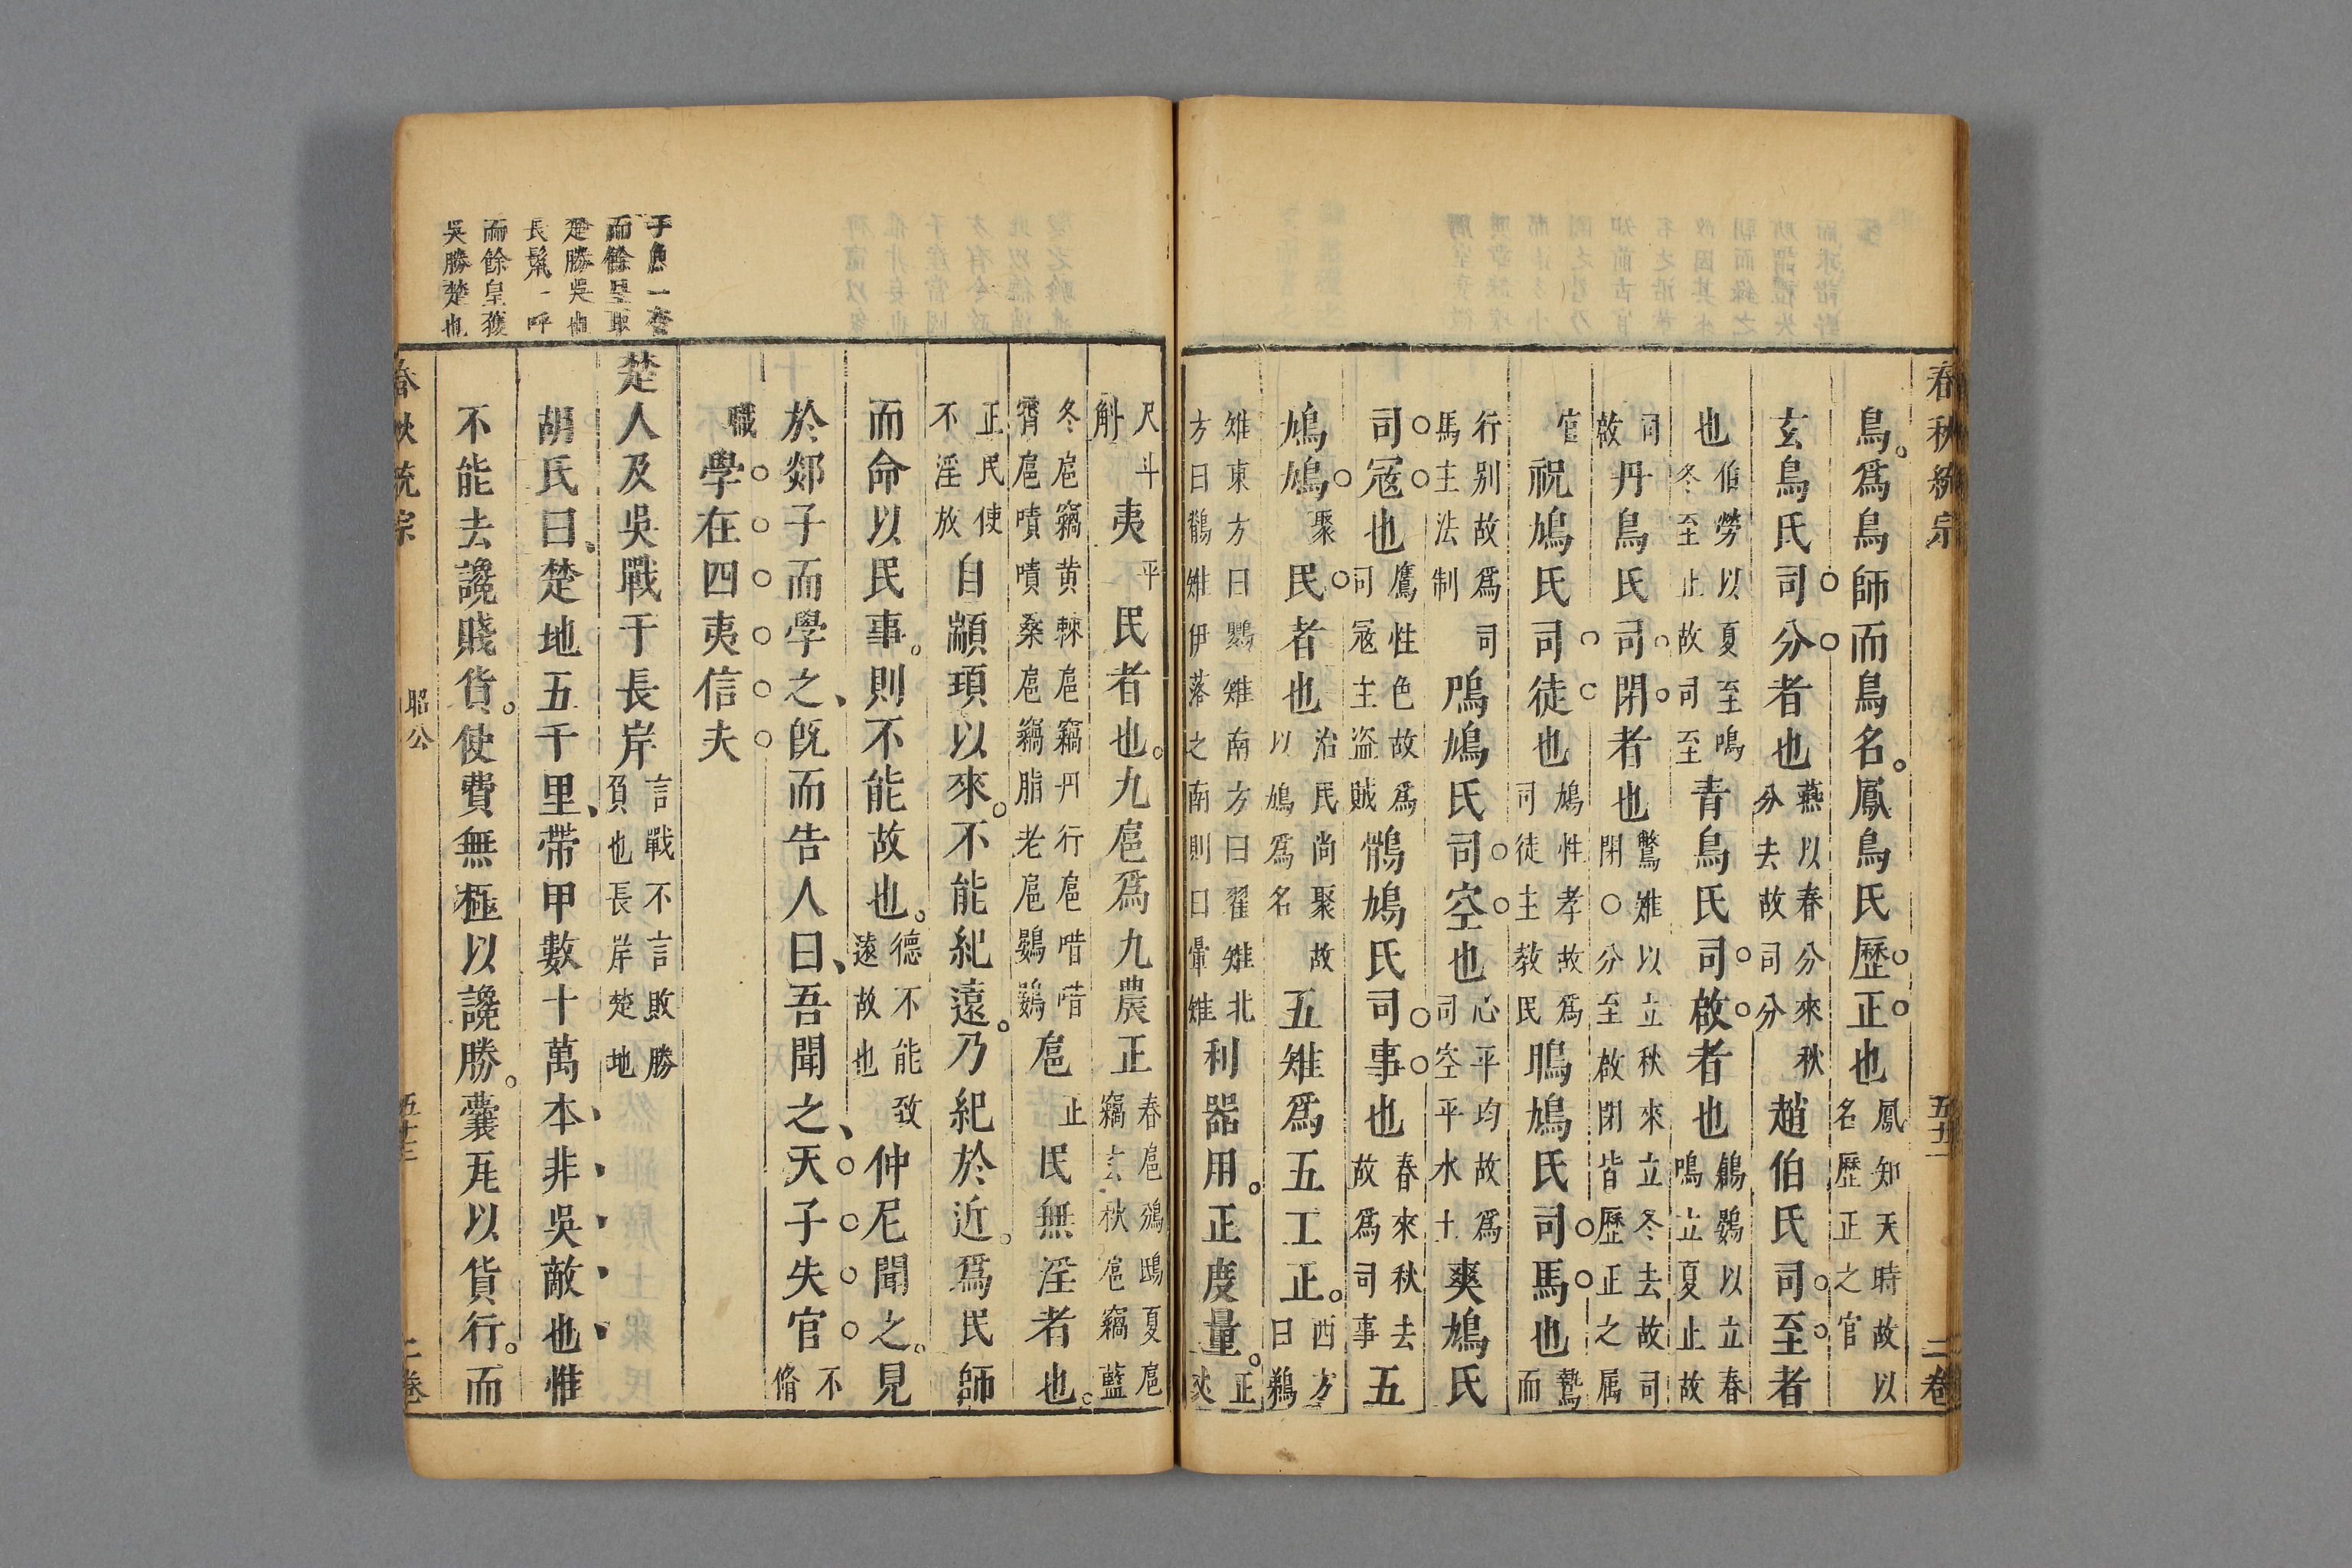 春秋統宗 五十二 二卷
鳥爲鳥師而鳥名鳳鳥氏歷正也鳳知天時故以名歷正之官
玄鳥氏司分者也燕以春分來秋分去故司分趙伯氏司至者
也伯勞以夏至鳴冬至止故司至青鳥氏司啟者也鶬鷃以立春鳴立夏止故
司啟丹鳥氏司閉者也鷩雉以立秋來立冬去故司閉○分至啟閉皆歷正之属
官祝鳩氏司徒也鳩性孝故爲司徒主教民鵙鳩氏司馬也鷙而
行别故爲司馬主法制鳲鳩氏司空也心平均故爲司空平水土爽鳩氏
司冦也鷹性色故爲司冦主盗賊鶻鳩氏司事也春來秋去故爲司事五
鳩鳩聚民者也治民尚聚故以鳩爲名五雉爲五工正西方曰鶅
雉東方曰鶨雉南方曰翟雉北方曰鵗雉伊落之南則曰翬雉利器用正度量正
尺斗斛夷平民者也九扈爲九農正春扈鳻鶞夏扈竊玄秋扈竊藍
冬扈竊黄棘扈竊丹行扈唶唶霄扈嘖嘖桑扈竊脂老扈鷃鷃扈止民無淫者也
正民使不淫放自顓頊以來不能紀遠乃紀於近爲民師
而命以民事則不能故也德不能致遠故也仲尼聞之見
於郯子而學之旣而告人曰吾聞之天子失官不脩
職學在四夷信夫
楚人及吳戰于長岸言戰不言敗勝負也長岸楚地
胡氏曰楚地五千里帶甲數十萬本非吳敵也惟
不能去讒賤貨使費無極以讒勝囊瓦以貨行而
春秋統宗 昭公 五十三 二卷
子魚一奮
而餘皇取
楚勝吳也
長鬣一呼
而餘皇獲
吳勝楚也